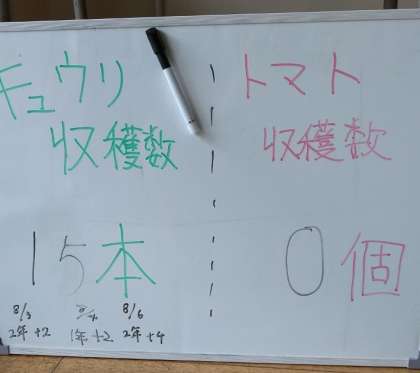 キュウリ
収穫数
15本
8/3
2年+2
1年+2
8/6
2年+4
トマト
収穫数
0個